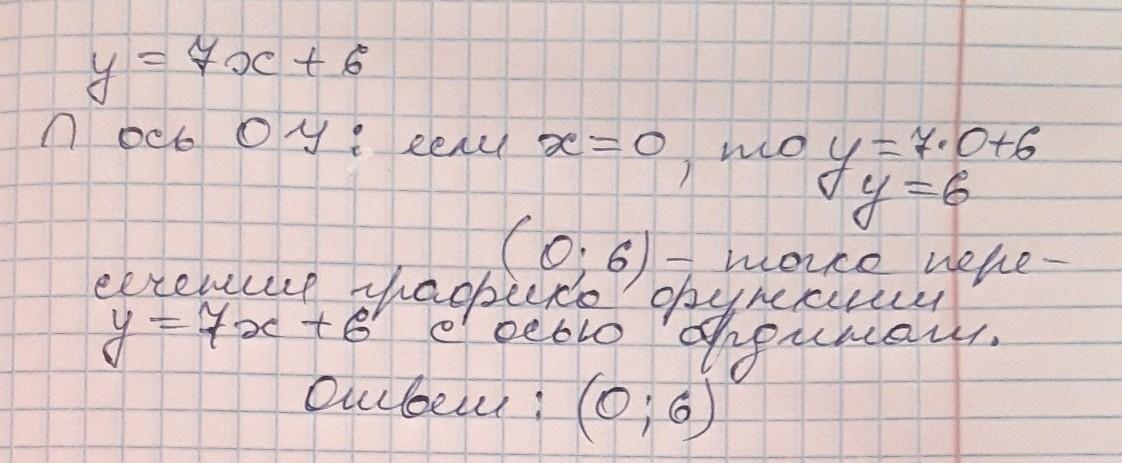 y = 7x + 6
∩ ось OY: если x = 0, то y = 7·0+6
y = 6
(0; 6) – точка пере-
сечения графика функции
y = 7x + 6 с осью ординат.
Ответ: (0; 6)